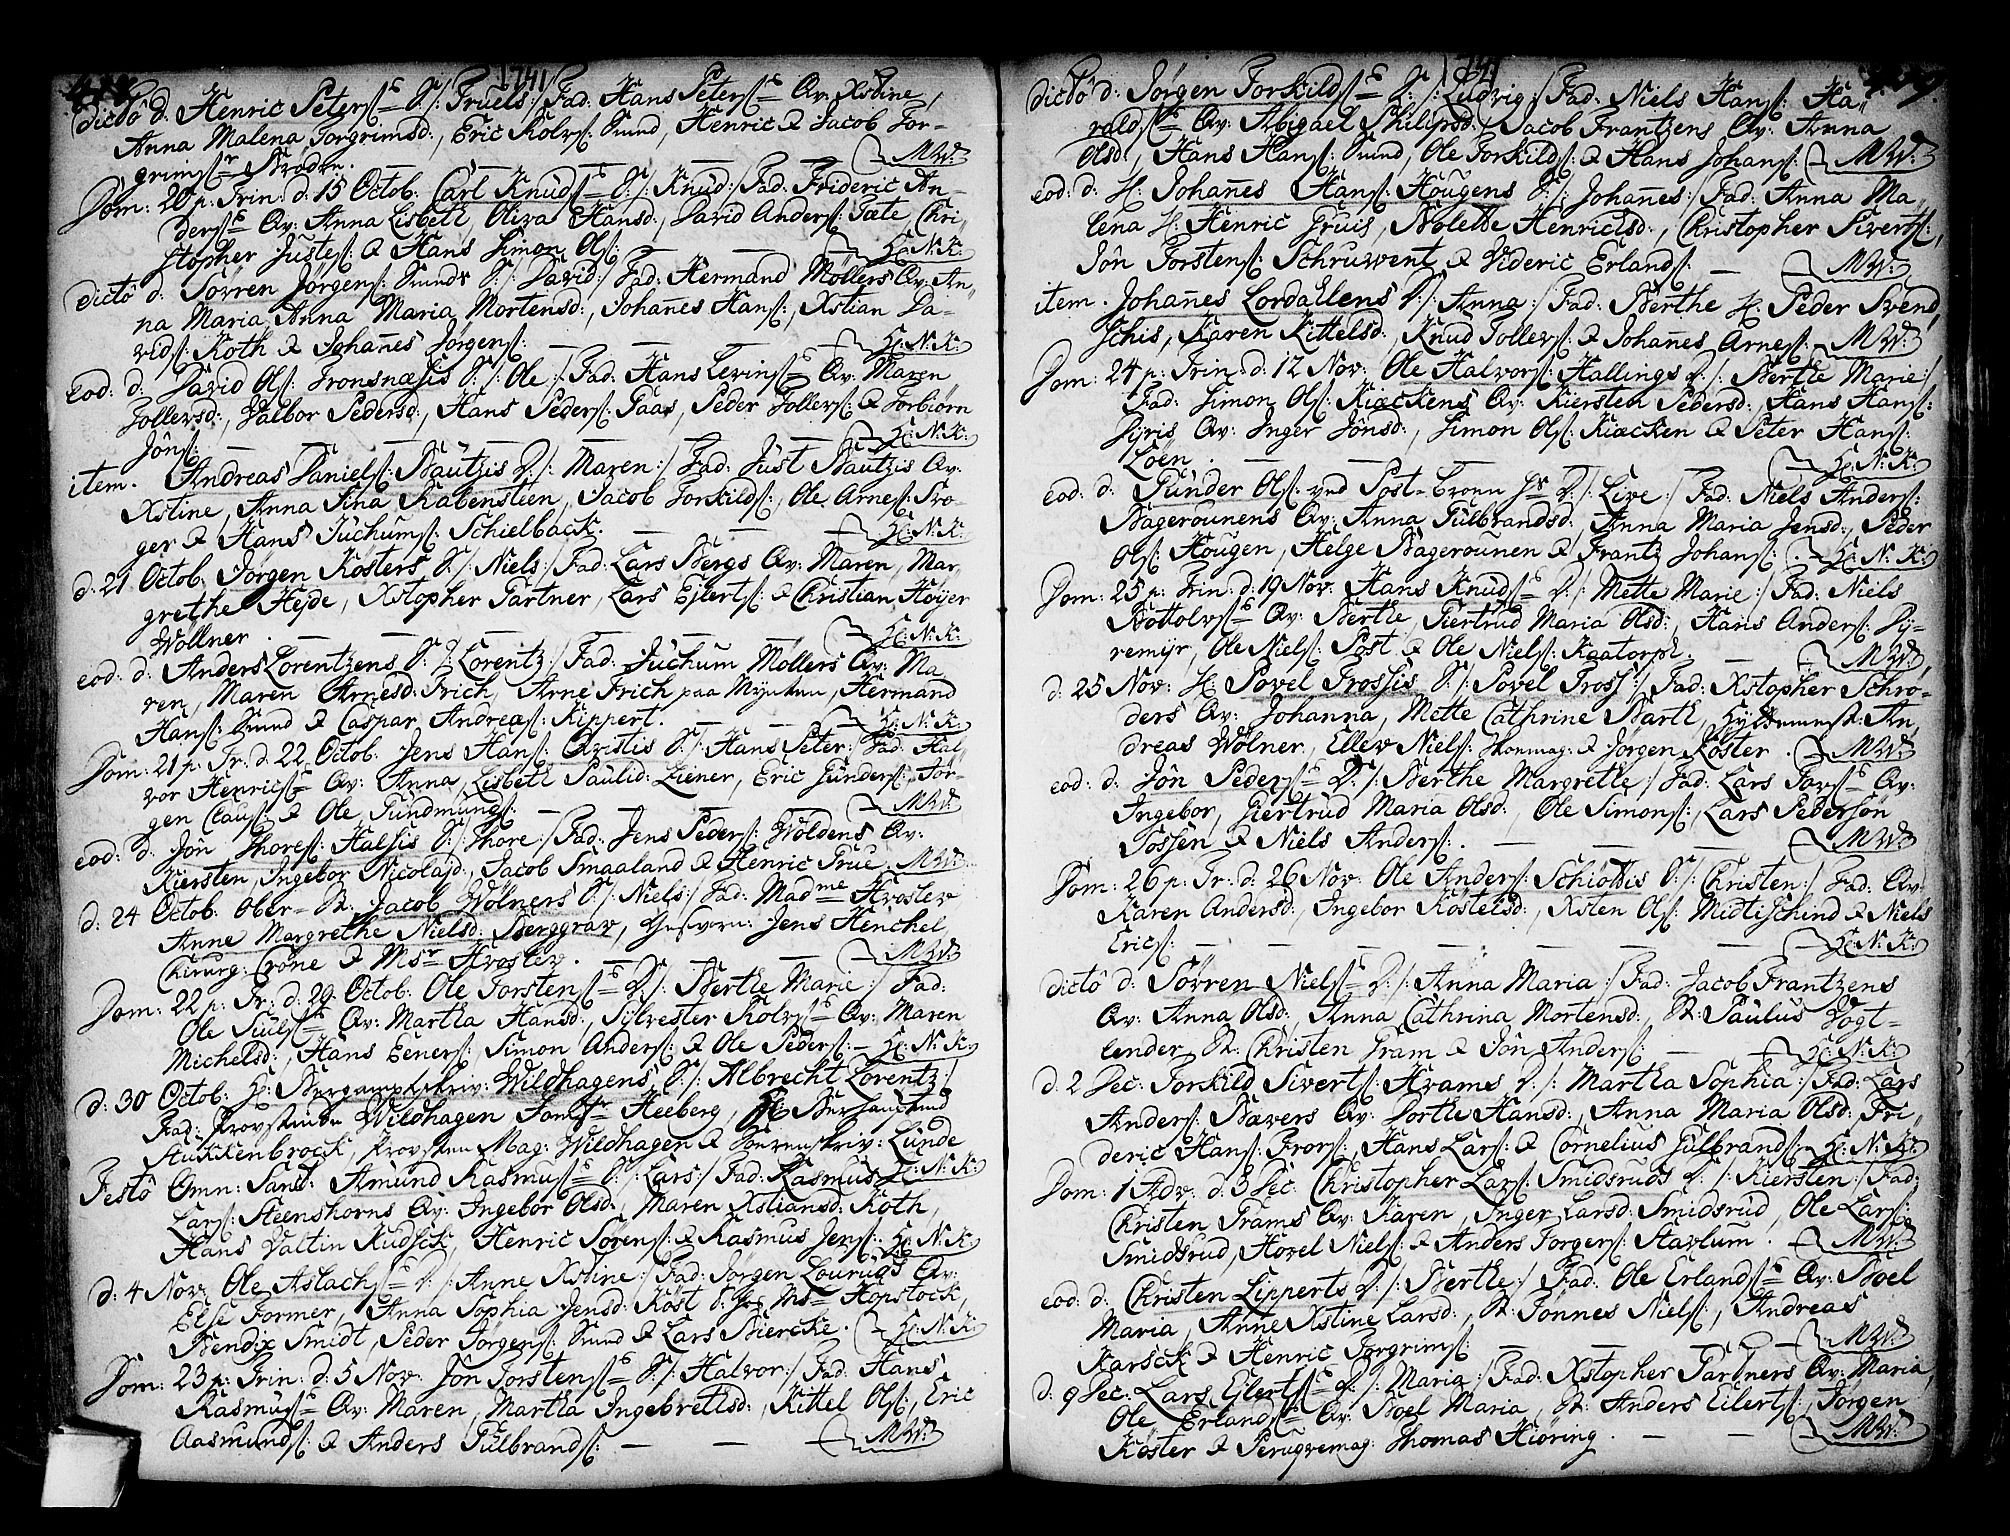 1741
dictô d: Henric Peters: S: /: Truels :/ Fad: Hans Peters: Qv: Xstine,
Anna Malena Torgrimsd:, Eric Kolvs: Smed, Henric & Jacob Tor-
grims: Brødre. — — — MW:
Dom: 20 p: Trin: d: 15 Octob: Carl Knuds: S: /: Knud :/ Fad: Frideric An-
ders: Qv: Anna Lisbeth, Oliva Hansd:, David Anders: Tæte, Chri-
stopher Justes: & Hans Simon Ols: — — H: N: K:
dictô d: Sövren Jörgens: Smeds S: /: David :/ Fad: Hermand Möllers Qv: An-
na Maria, Anna Maria Mortensd:, Johanes Hans:, Xstian Da-
vids: Koth & Johanes Jörgens: — — — H: N: K:
eod: d: David Ols: Tronsnæsis S: /: Ole :/ Fad: Hans Levins: Qv: Maren
Tollersd:, Valbor Pedersd:, Hans Peders: Paas, Peder Tollers: & Torbiörn
Jöns: — — — — H: N: K:
item. Andreas Daniels: Bautzis D: /: Maren :/ Fad: Just Bautzis Qv:
Xstine, Anna Sina Rabensteen, Jacob Torkilds:, Ole Arnes: Tro-
ger & Hans Juchums: Schielback. — — H: N: K:
d: 21 Octob: Jörgen Kösters S: /: Niels :/ Fad: Lars Bergs Qv: Maren, Mar-
grethe Hejde, Xstopher Partner, Lars Ejlerts: & Christian Höijer
Wöllner. — — — — H: N: K:
eod: d: Anders Lorentzens S: /: Lorentz :/ Fad: Juchum Möllers Qv: Ma-
ren, Maren Arnesd: Frich, Arne Frich paa Mynten, Hermand
Hans: Smed & Caspar Andreas: Kippert. — — H: N: K:
Dom: 21 p: Tr: d: 22 Octob: Jens Hans: Qvistis S: /: Hans Peter :/ Fad: Hal-
vor Henrics: Qv: Anna, Lisbeth Paulid: Ziener, Eric Gunders:, Jör-
gen Claus: & Ole Gundmunds: — — MW:
eod: d: Jôn Thores: Halsis S: /: Thore :/ Fad: Jens Peders: Woldens Qv:
Kiersten, Ingebor Nicolajd:, Jacob Smaaland & Henric True. MW:
d: 24 Octob: Ober-B: Jacob Wölners S: /: Niels :/ Fad: Madme Kroslev
Anne Margrethe Nielsd: Berggrav, Jens Henchel,
Chirurg: Crone & Msr Kroslev. — — — MW:
Dom: 22 p: Tr: d: 29 Octob: Ole Torstens: D: /: Berthe Marie :/ Fad:
Ole Juuls: Qv: Martha Hansd:, Sylvester Kolvs: Qv: Maren
Michelsd:, Hans Eeners:, Simon Anders: & Ole Peders: — H: N: K:
d: 30 Octob: H: Bergamptskriv: Wildhagens S: /: Albrecht Lorentz :/
Fad: Provstinde Wildhagen Jomfr Heeberg, H: Berhauptmd
Stuckenbrock, Provsten Mag: Wildhagen & Sorenskriv: Lunde
Festô Omn: Sanct: Amund Rasmus: S: /: Lars :/ Fad: Rasmus H: N: K:
Lars: Steenshorns Qv: Ingebor Olsd:, Maren Xstiansd: Koth,
Hans Valtin Kudsck, Henric Sörens: & Rasmus Jens: H: N: K:
d: 4 Nov: Ole Aslachs: D: /: Anne Xstine :/ Fad: Jörgen Louruas Qv:
Else Former, Anna Sophia Jensd: Köst, Msr Hopstock,
Bendix Smidt, Peder Jörgens: Smed & Lars Biercke. H: N: K:
Dom: 23 p: Trin: d: 5 Nov: Jôn Torstens: S: /: Halvor :/ Fad: Hans
Rasmus: Qv: Maren, Martha Ingebrettsd:, Kittel Ols:, Eric
Aasmunds: & Anders Gulbrands: — — MW:
1741
dictô d: Jörgen Torkilds: S: /: Ludvig :/ Fad: Niels Hans: Ha-
ralds: Qv: Abigael Philipsd:, Jacob Frantzens Qv: Anna
Olsd:, Hans Hans: Smed, Ole Torkilds: & Hans Johans: MW:
eod: d: H: Johanes Hans: Hougens S: /: Johanes :/ Fad: Anna Ma-
lena H: Henric Gruis, Nolethe Henricsd:, Christopher Siverts:,
Jôn Torstens: Schruwent & Videric Erlands: — MW:
item. Johanes Lordallens D: /: Anna :/ Fad: Berthe H: Peder Svend-
schis, Karen Kittelsd:, Knud Tollevs: & Johanes Arnes: MW:
Dom: 24 p: Trin: d: 12 Nov: Ole Halvors: Hallings D: /: Berthe Marie :/
Fad: Simon Ols: Kieckens Qv: Kiersten Pedersd:, Hans Hans:
Dyris Qv: Inger Jönsd:, Simon Ols: Kiecken & Peter Hans:
Loen. — — — — H: N: K:
eod: d: Gunder Ols: ved Post-bronn D: /: Live :/ Fad: Niels Anders:
Bagerounens Qv: Anna Gulbrandsd:, Anna Maria Jensd:, Peder
Ols: Hougen, Helge Bagerounen & Frantz Johans: — H: N: K:
Dom: 25 p: Trin: d: 19 Nov: Hans Knuds: D: /: Mette Marie :/ Fad: Niels
Bottolvs: Qv: Berthe, Giertrud Maria Olsd:, Hans Anders: Dy-
remyr, Ole Niels: Post & Ole Niels: Kaatorpl. — MW:
d: 25 Nov: H: Povel Trossis S: /: Povel Tross :/ Fad: Xstopher Schrö-
ders Qv: Johanna, Mette Cathrine Barth, Hyttemest: An-
dreas Wölner, Ellev Niels: Skonmag: & Jörgen Köster. MW:
eod: d: Jôn Peders: D: /: Berthe Margrethe :/ Fad: Lars Tors: Qv:
Ingebor, Giertrud Maria Olsd:, Ole Simons:, Lars Pedersön
Fossen & Niels Anders: — — — MW:
Dom: 26 p: Tr: d: 26 Nov: Ole Anders: Schiöttis S: /: Christen :/ Fad: Qv:
Karen Andersd:, Ingebor Köstelsd:, Xsten Ols: Midtischind & Niels
Erics: — — — — — H: N: K:
dictô d: Sövren Niels: D: /: Anna Maria :/ Fad: Jacob Frantzens
Qv: Anna Olsd:, Anna Cathrina Mortensd:, B: Paulus Vogt-
lender, B: Christen Gram & Jôn Anders: — H: N: K:
d: 2 Dec: Torkild Siverts: Krams D: /: Martha Sophia :/ Fad: Lars
Anders: Bævers Qv: Dorthe Hansd:, Anna Maria Olsd: Fri-
deric Hans: Fror:, Hans Lars: & Cornelius Gulbrands: H: N: K:
Dom: 1 Adv: d: 3 Dec: Christopher Lars: Smidsruds D: /: Kiersten :/ Fad:
Christen Grams Qv: Karen, Inger Larsd: Smidsrud, Ole Lars:
Smidsrud, Hovel Niels: & Anders Jörgens: Aavlum. — MW:
eod: d: Christen Lipperts D: /: Berthe :/ Fad: Ole Erlands: Qv: Boel
Maria, Anne Xstine Larsd:, B: Tönnes Niels:, Andreas
Karsck & Henric Torgrims: — — — MW:
d: 9 Dec: Lars Eilerts: D: /: Maria :/ Fad: Xstopher Partners Qv: Maria,
Ole Erlands: Qv: Boel Maria, B: Anders Eilerts:, Jörgen
Köster & Perugvemag: Thomas Hiöring. — — MW: